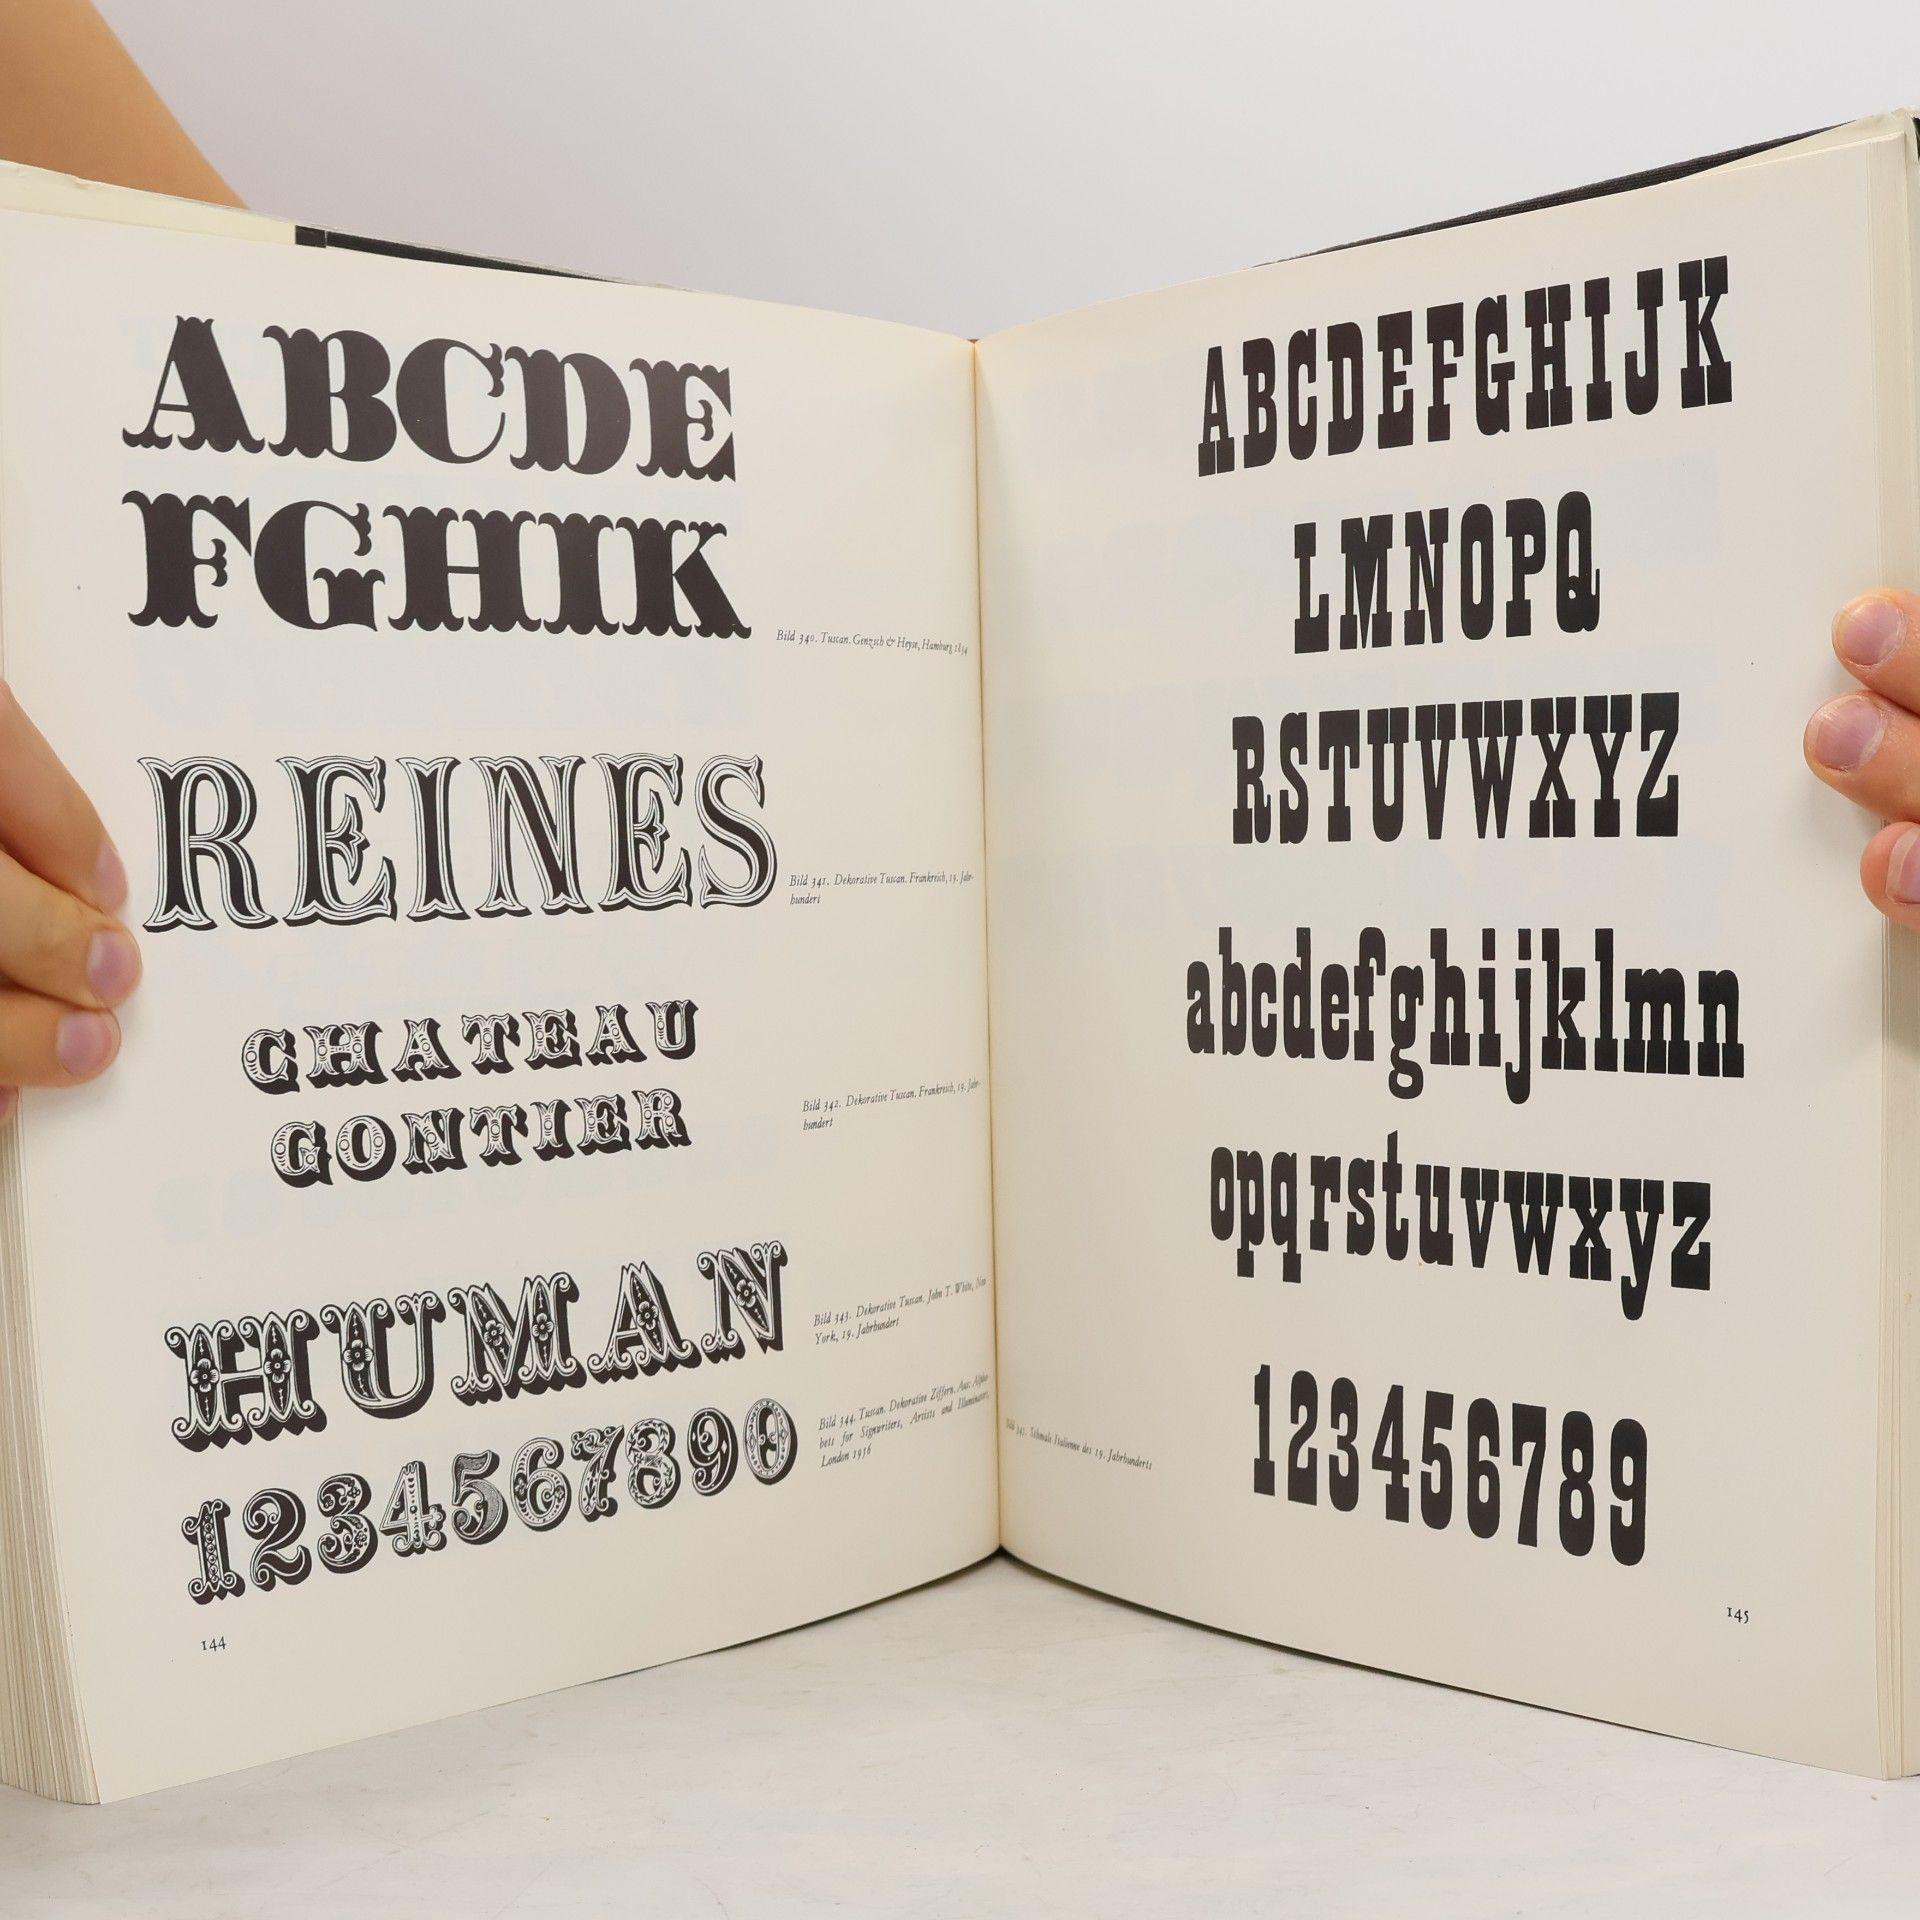 ABCDE
FGHIK
Bild 340. Tuscan. Genzsch & Heyse, Hamburg 1834
REINES
Bild 341. Dekorative Tuscan. Frankreich, 19. Jahr-
hundert
CHATEAU
GONTIER
Bild 342. Dekorative Tuscan. Frankreich, 19. Jahr-
hundert
HUMAN
Bild 343. Dekorative Tuscan. John T. White, New
York, 19. Jahrhundert
1234567890
Bild 344. Tuscan. Dekorative Ziffern. Aus: Alpha-
bets for Signwriters, Artists and Illuminators,
London 1956
144
ABCDEFGHIJK
LMNOPQ
RSTUVWXYZ
abcdefghijklmn
opqrstuvwxyz
123456789
Bild 345. Schmale Italienne des 19. Jahrhunderts
145